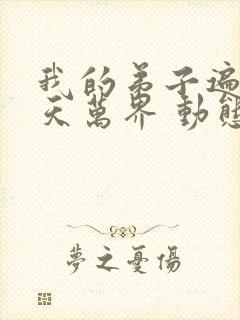 我的弟子遍
天萬界 動態
夢之憂傷